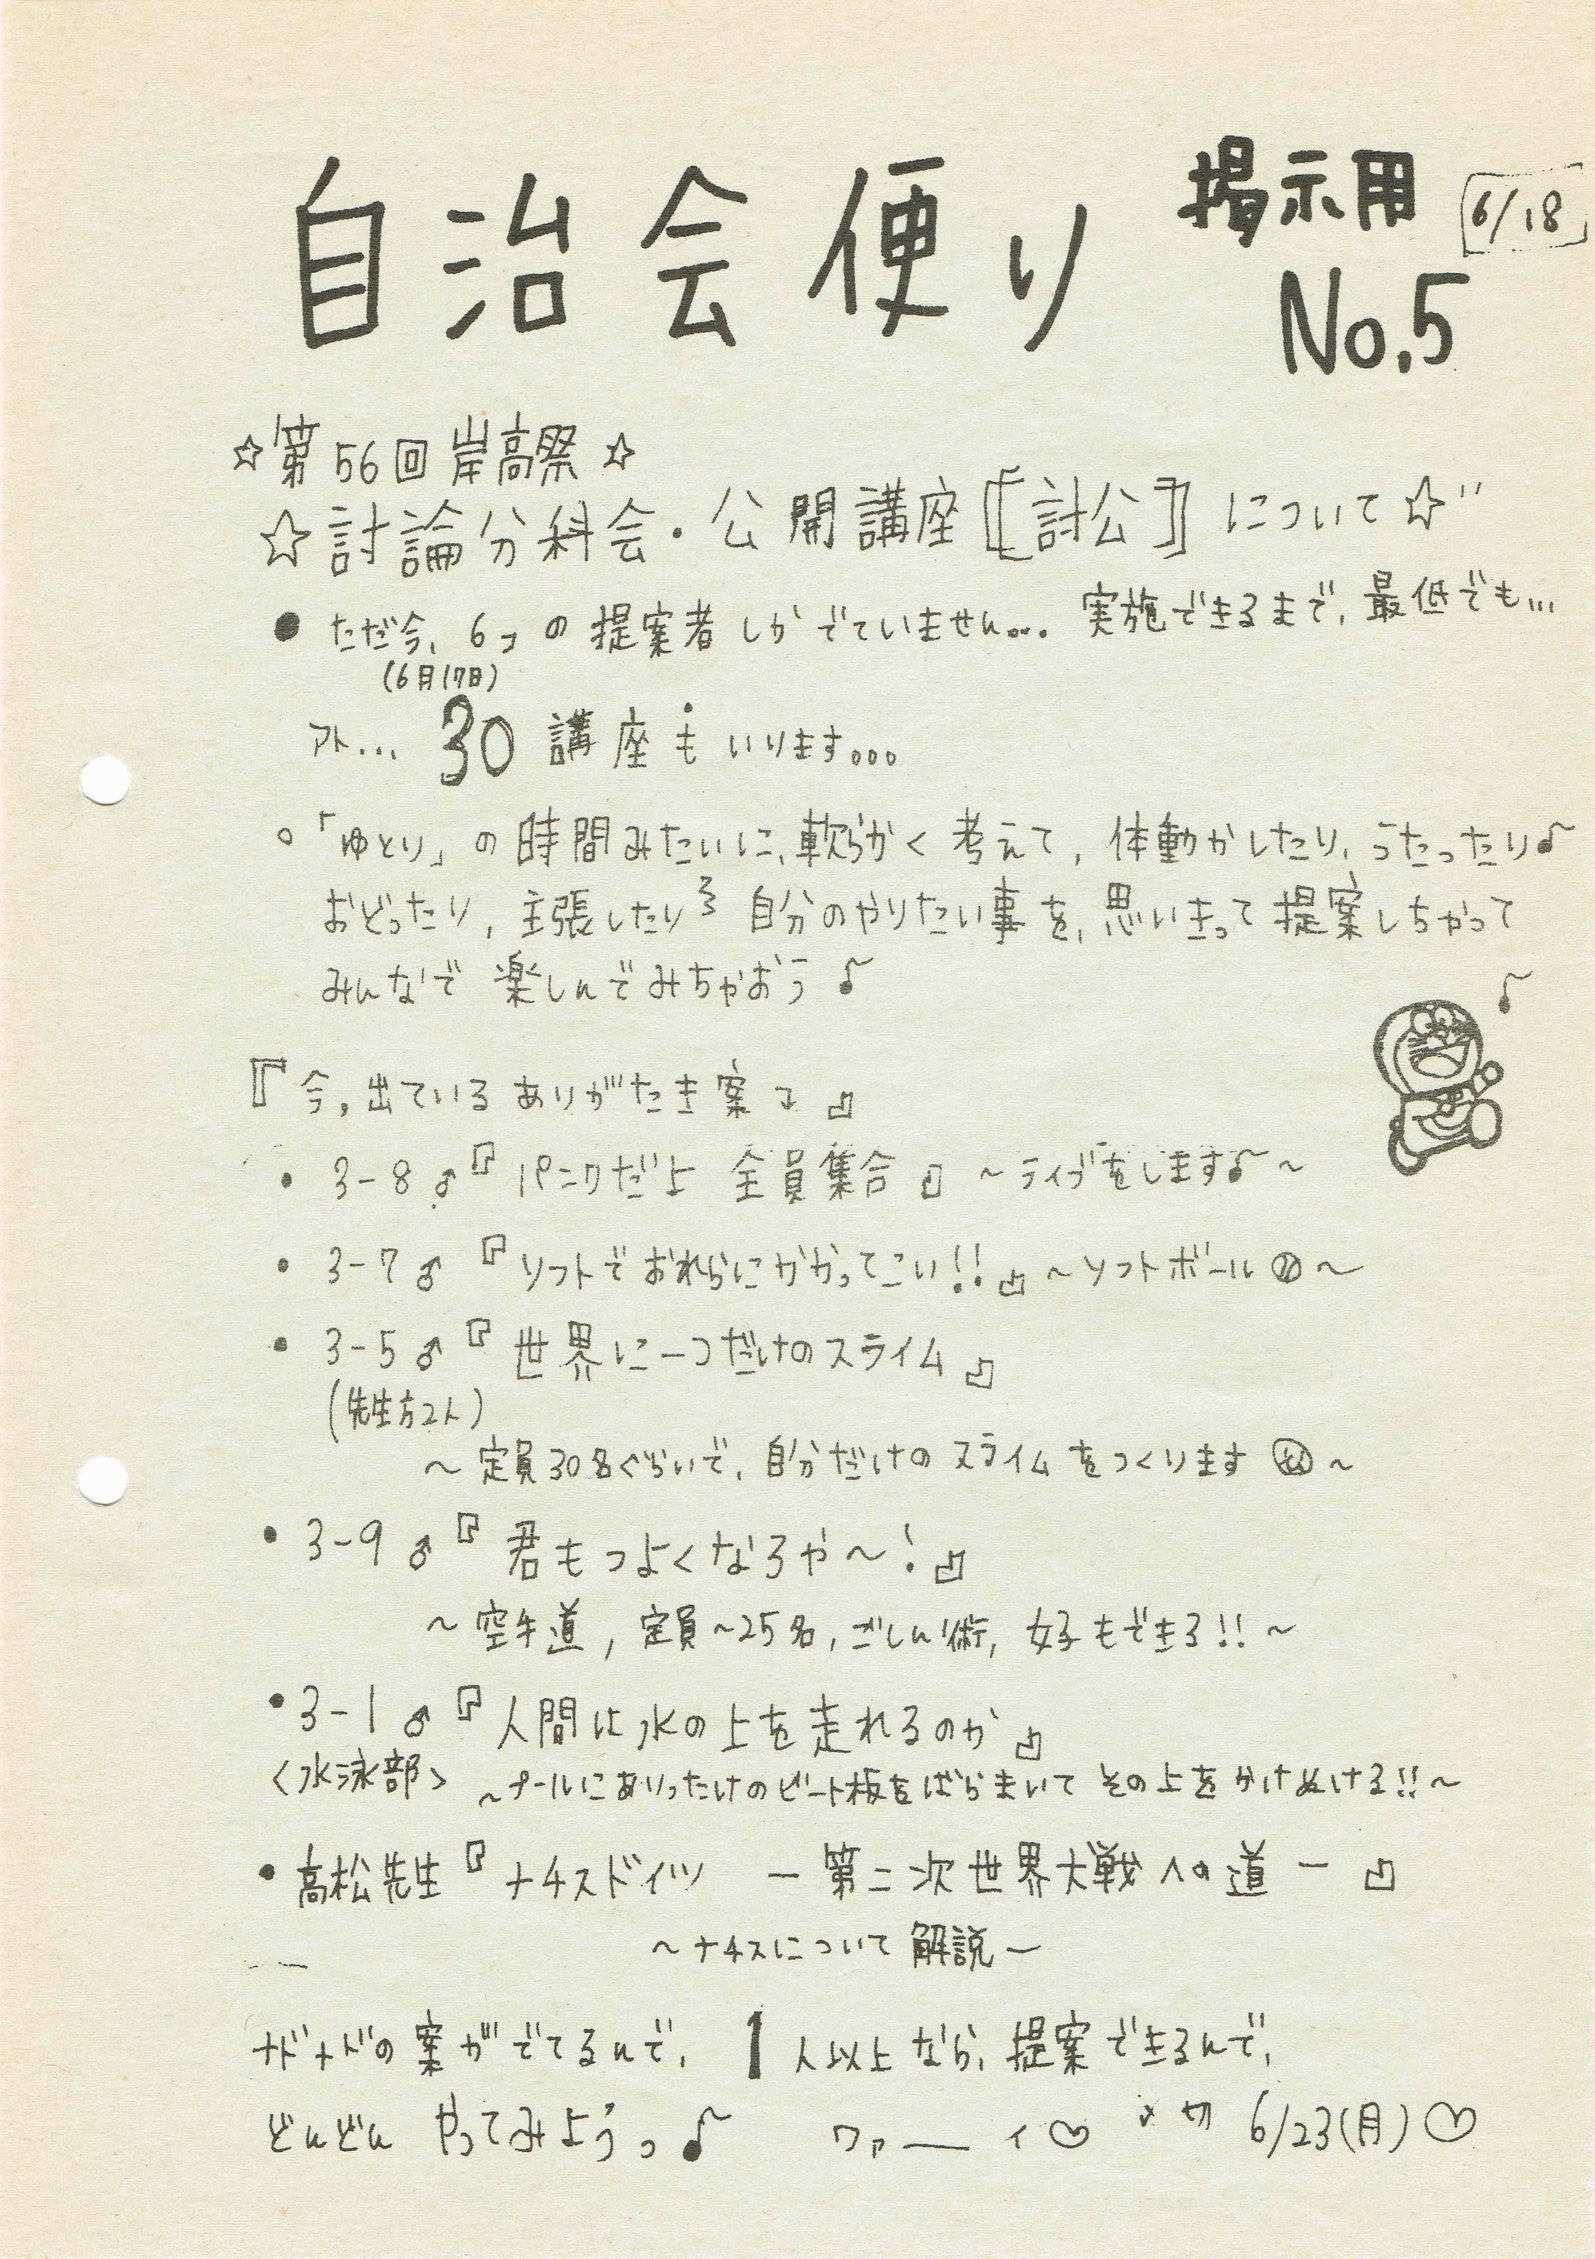 自治会便り
掲示用
6/18
No.5
☆第56回岸高祭☆
☆討論分科会・公開講座〚討公〛について☆"
●ただ今、6コの提案者しかでていません… 実施できるまで、最低でも…
(6月17日)
アト… 30講座もいります。。。
○「ゆとり」の時間みたいに、軟らかく考えて、体動かしたり、うたったり♪
おどったり、主張したり 自分のやりたい事を、思いきって提案しちゃって
みんなで楽しんでみちゃおう♪
『今、出ているありがたき案↴』
・3-8♂『パニクだよ 全員集合』〜ライブをします♪〜
・3-7♂『ソフトでおれらにかかってこい!!』〜ソフトボール〜
・3-5♂『世界に一つだけのスライム』
(先生方2人)
〜定員30名ぐらいで、自分だけのスライムをつくります〜
・3-9♂『君もつよくなろや〜!』
〜空手道, 定員〜25名, ごしん術, 女子もできる!!〜
・3-1♂『人間は水の上を走れるのか』
<水泳部> 〜プールにありったけのビート板をばらまいて その上をかけぬける!!〜
・高松先生『ナチスドイツ ー第二次世界大戦への道ー』
〜ナチスについて解説ー
ナドナドの案がでてるんで、1人以上なら、提案できるんで、
どんどん やってみようっ♪ ワァーイ♡ 〆切 6/23(月)♡